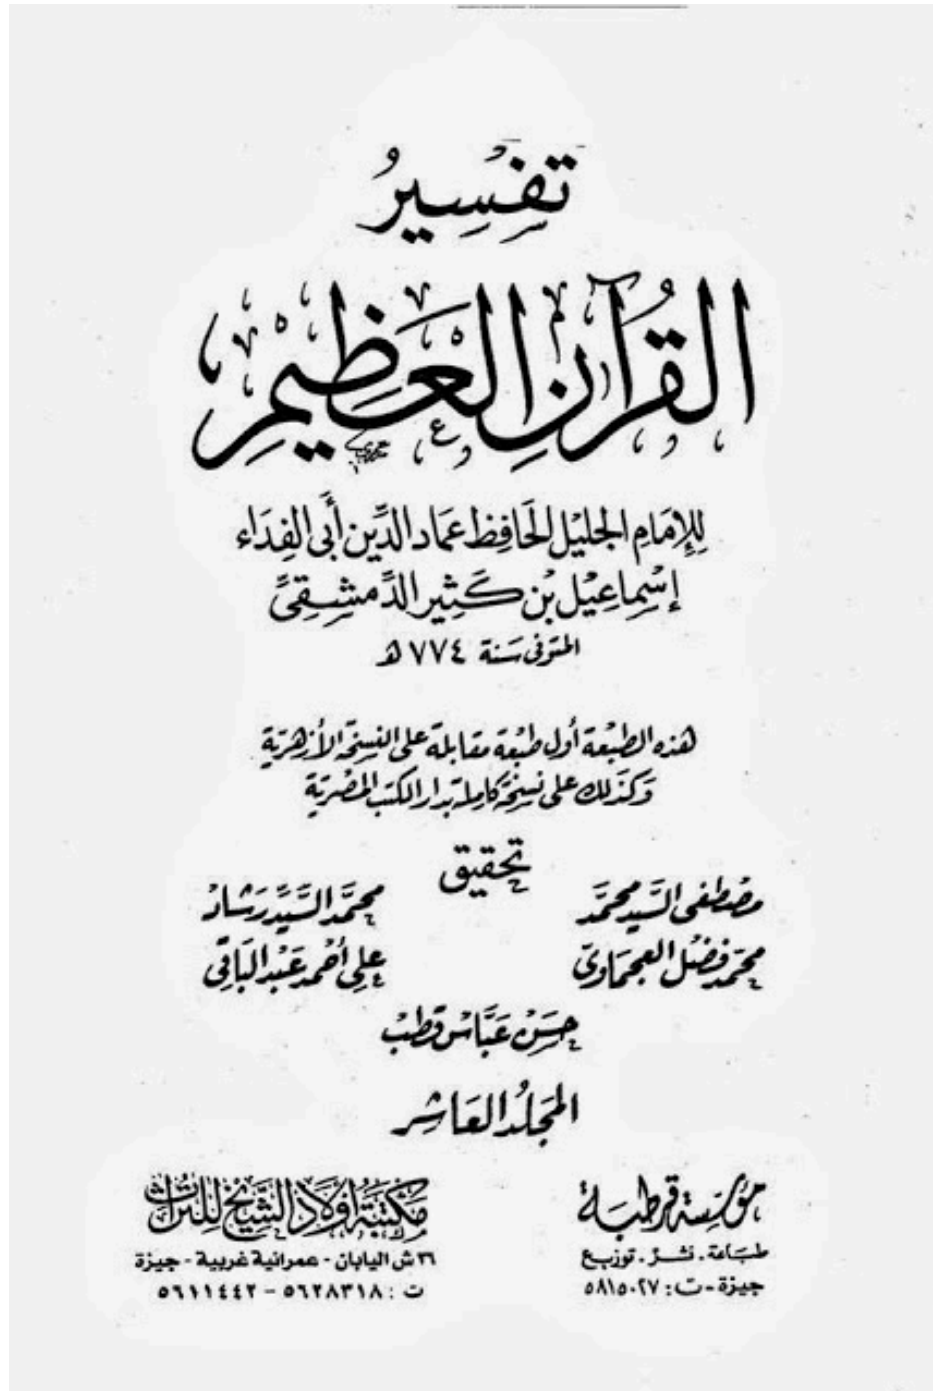 تَفْسِيرُ
القُرآنِ العَظِيمِ
لِلإِمَامِ الجَلِيْلِ الحَافِظِ عِمَادِ الدِّينِ أَبِى الفِدَاء
إِسْمَاعِيْل بْن كَثِير الدِّمَشْقِىِّ
المتوفى سَنة ٧٧٤ هـ
هذه الطبْعة أول طبْعة مقابلة على النسخة الأزهرَية
وَكذلك على نسخَة كاملة بدار الكتب المصْرية
تحقيق
مصْطفى السَّيد محمَّد محمَّد السَّيَّد رَشاد
محمَّد فضْل العجمَاوى على أحْمد عَبْد البَاقى
حسَن عَبَّاس قطبْ
المجَلد العَاشِر
مؤسسة قرطبة مكتبة أولاد الشيخ للتراث
طبَاعة . نشْر . توزيع ٣٦ ش اليابان - عمرانية غربية - جيزة
جيزة - ت : ٥٨١٥٠٢٧ ت : ٥٦٢٨٣١٨ - ٥٦١١٤٤٢